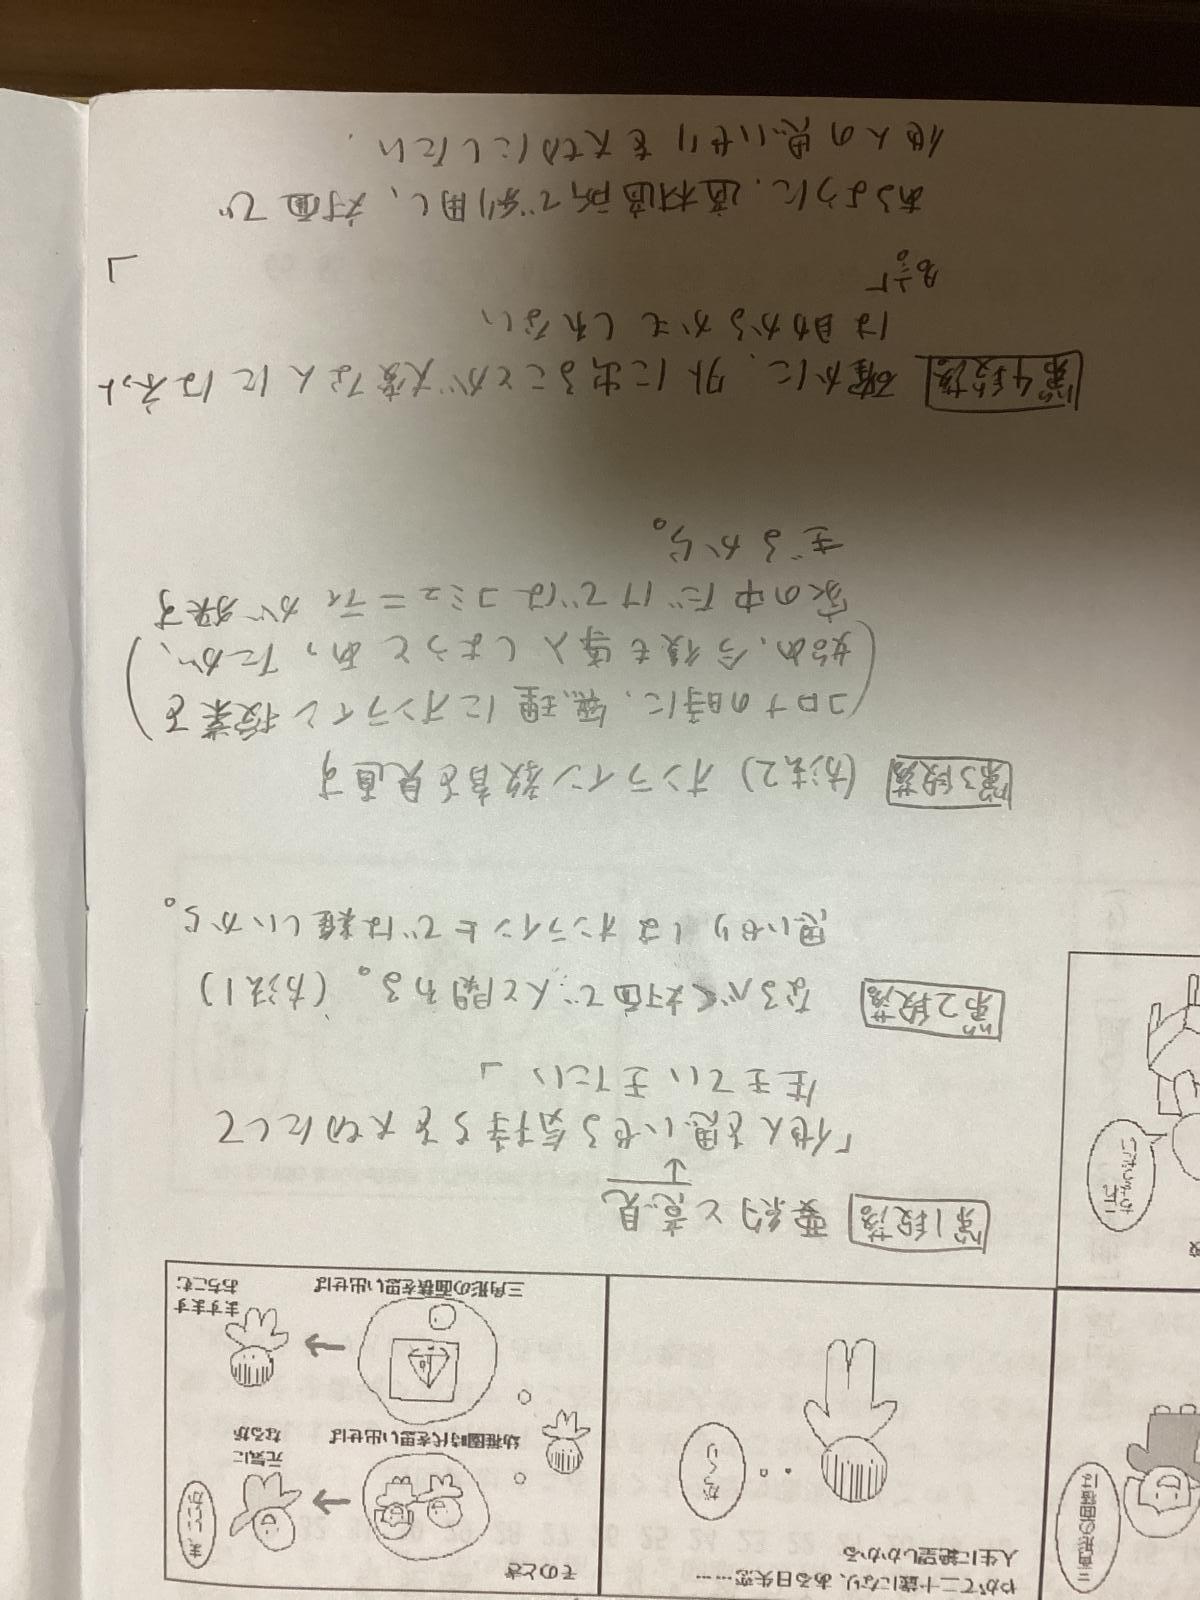 やがて二十歳になり、ある日失恋……
人生に絶望しかかる
がっくり
そのとき
幼稚園時代を思い出せば
元気に
なるが
三角形の面積を思い出せば
ますます
おちこむ
三角形の面積は
第1段落 要約と意見
↓
「他人を思いやる気持ちを大切にして
生きていきたい」
第2段落 なるべく対面で人と関わる。(方法1)
思いやりはオンライン上では難しいから。
第3段落 (方法2) オンライン教育を見直す
(コロナの時に、無理にオンライン授業を
始め、今後も導入しようとあったが、)
家の中だけではコミュニティが狭す
ぎるから。
第4段落 確かに、外に出ることが大変な人にはネット
は助かるかもしれない
名言「 」
あるように、適材適所で利用し、対面で
他人の思いやりを大切にしたい.